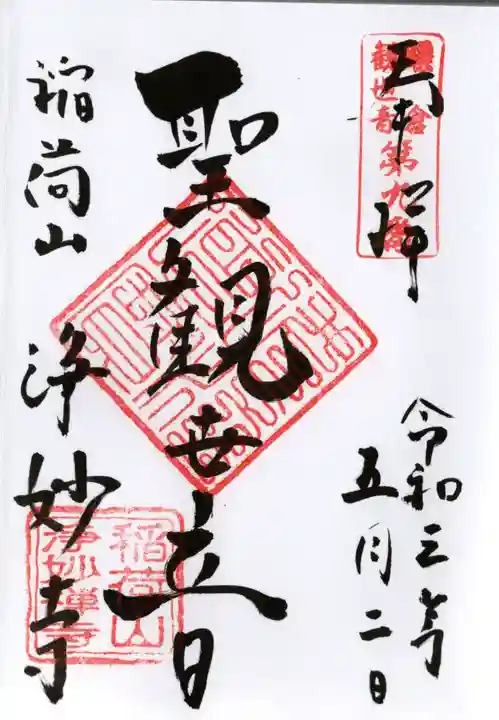 奉拝
令和三年
五月二日
聖観世音
稲荷山 浄妙寺
鎌倉
観世音
第九番
稲荷山
浄妙禅寺